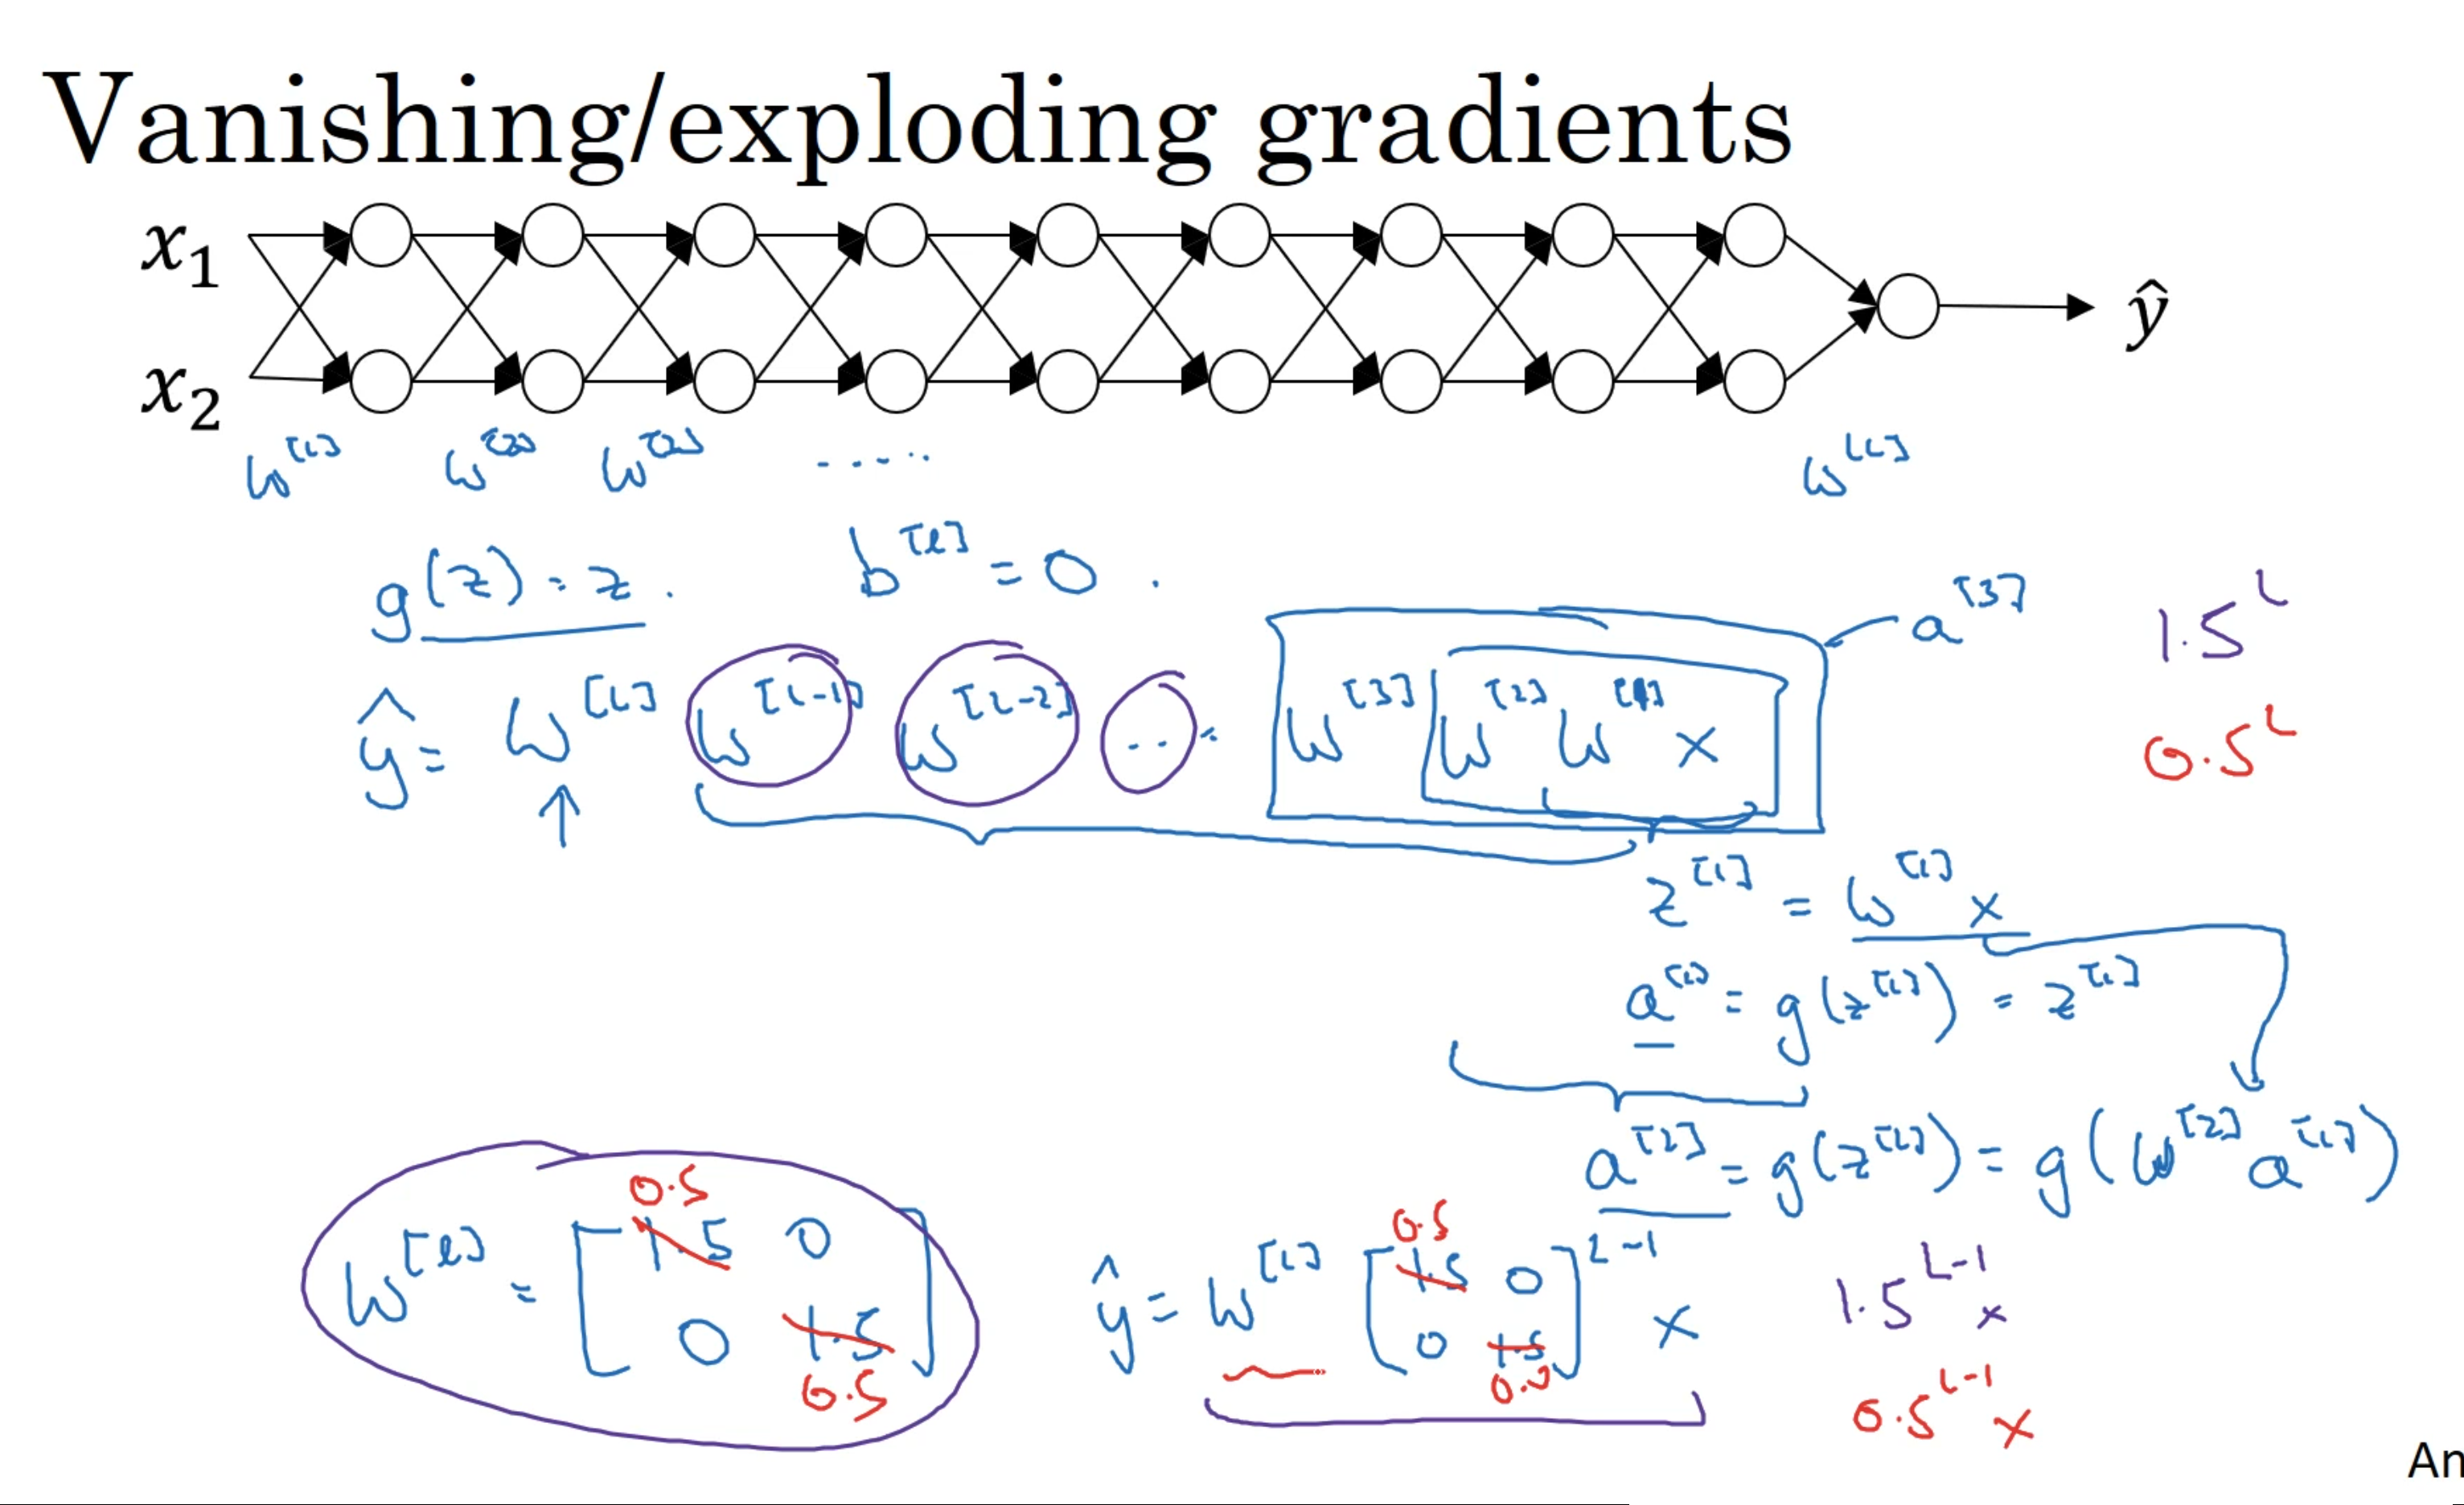 Vanishing/exploding gradients
x₁
x₂
ŷ
W^[1] W^[2] W^[3] ..... W^[L]
g(z) = z. b^[l] = 0.
a^[3]
1.5^L
ŷ = W^[L] W^[L-1] W^[L-2] ... W^[3] W^[2] W^[1] x
0.5^L
z^[1] = W^[1] x
a^[1] = g(z^[1]) = z^[1]
a^[2] = g(z^[2]) = g(W^[2] a^[1])
0.5 0.5
W^[l] = [1.5 0
0 1.5]
0.5
ŷ = W^[L] [1.5 0
0 1.5]^L-1 x
0.5
1.5^L-1 x
0.5^L-1 x
An